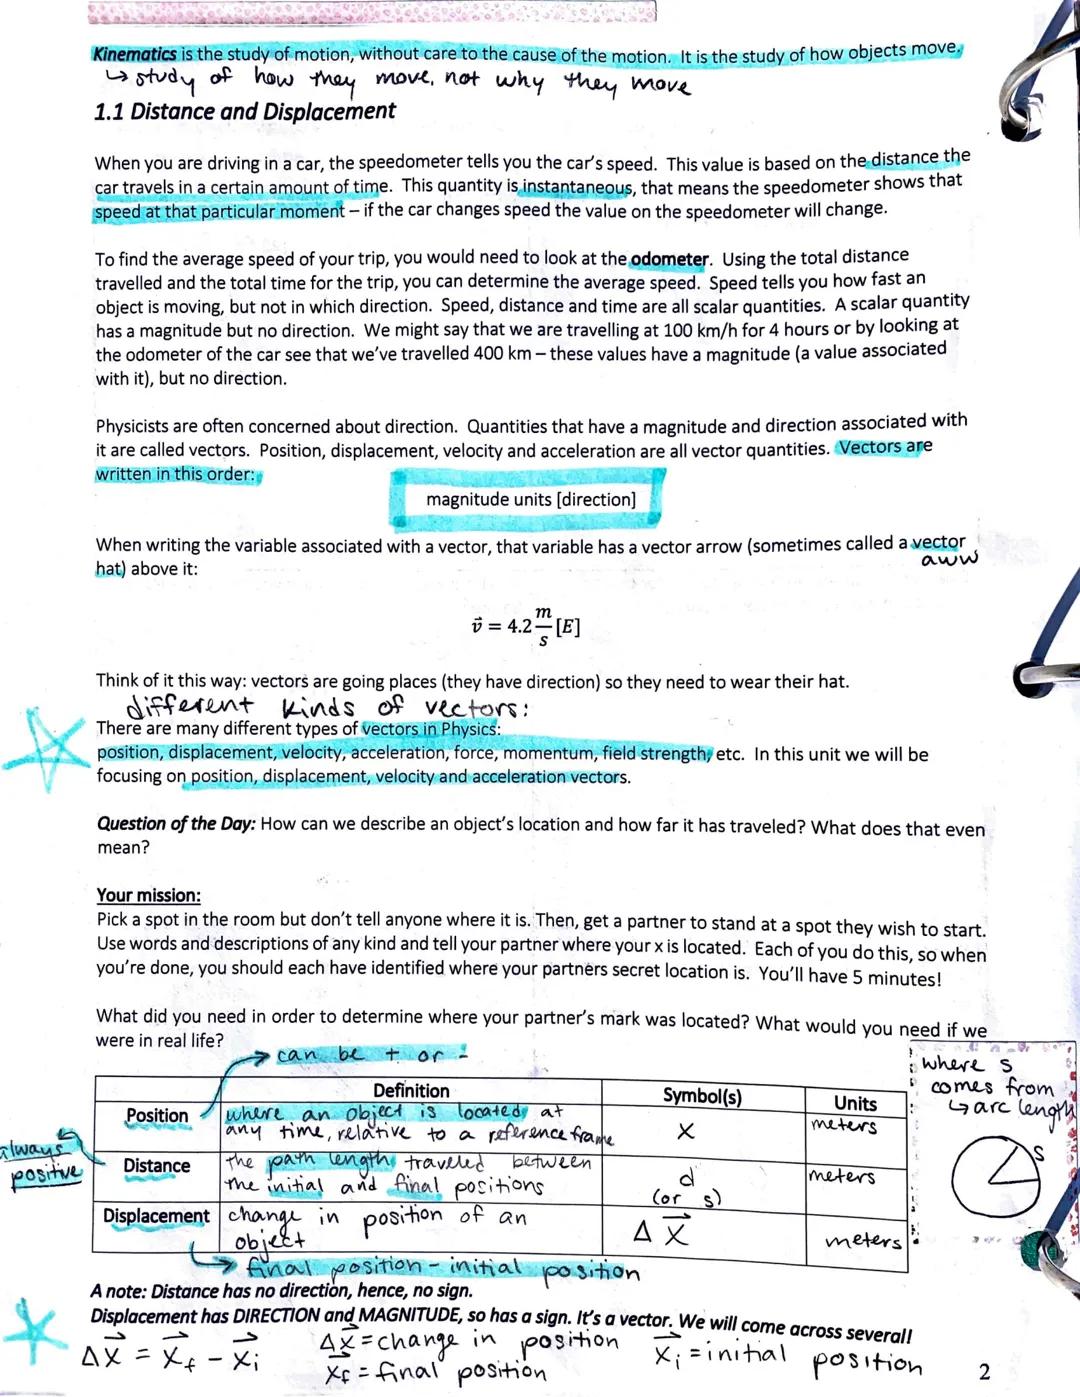 Kinematics is the study of motion, without care to the cause of the motion. It is the study of how objects move.
↳ study of how they move, not why they move
1.1 Distance and Displacement
When you are driving in a car, the speedometer tells you the car's speed. This value is based on the distance the
car travels in a certain amount of time. This quantity is instantaneous, that means the speedometer shows that
speed at that particular moment – if the car changes speed the value on the speedometer will change.
To find the average speed of your trip, you would need to look at the odometer. Using the total distance
travelled and the total time for the trip, you can determine the average speed. Speed tells you how fast an
object is moving, but not in which direction. Speed, distance and time are all scalar quantities. A scalar quantity
has a magnitude but no direction. We might say that we are travelling at 100 km/h for 4 hours or by looking at
the odometer of the car see that we've travelled 400 km – these values have a magnitude (a value associated
with it), but no direction.
Physicists are often concerned about direction. Quantities that have a magnitude and direction associated with
it are called vectors. Position, displacement, velocity and acceleration are all vector quantities. Vectors are
written in this order:
magnitude units [direction]
When writing the variable associated with a vector, that variable has a vector arrow (sometimes called a vector
aww
hat) above it:
v⃗ = 4.2 m/s [E]
Think of it this way: vectors are going places (they have direction) so they need to wear their hat.
different kinds of vectors:
There are many different types of vectors in Physics:
position, displacement, velocity, acceleration, force, momentum, field strength, etc. In this unit we will be
focusing on position, displacement, velocity and acceleration vectors.
Question of the Day: How can we describe an object's location and how far it has traveled? What does that even
mean?
Your mission:
Pick a spot in the room but don't tell anyone where it is. Then, get a partner to stand at a spot they wish to start.
Use words and descriptions of any kind and tell your partner where your x is located. Each of you do this, so when
you're done, you should each have identified where your partners secret location is. You'll have 5 minutes!
What did you need in order to determine where your partner's mark was located? What would you need if we
were in real life?
→ can be + or -
where s
comes from
↳ arc length
s
Definition Symbol(s) Units
Position where an object is located, at x meters
any time, relative to a reference frame
always
positive
Distance the path length traveled between d meters
the initial and final positions (or s)
Displacement change in position of an Δx⃗ meters
object
↳ final position - initial position
A note: Distance has no direction, hence, no sign.
Displacement has DIRECTION and MAGNITUDE, so has a sign. It's a vector. We will come across several!
Δx⃗ = x⃗f - x⃗i Δx⃗ = change in position x⃗i = initial position
x⃗f = final position
2